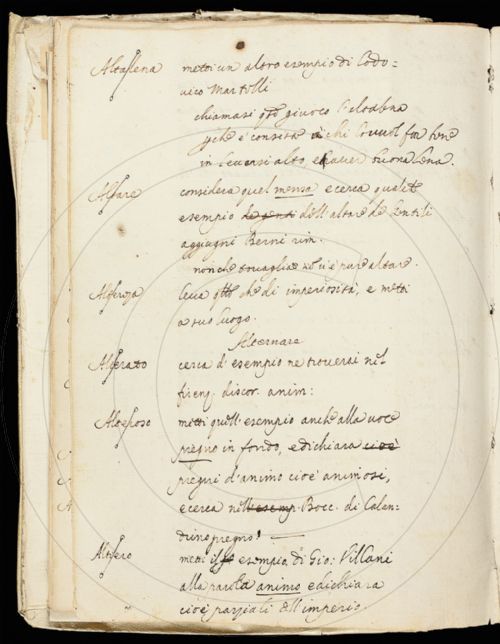 Altalena mettivi un altro esempio di Lodo=
vico Martelli
chiamasi qto giuoco l'altalena
pche è concesso a chi lo vuol far bene
in levarsi alto e haver buona lena.
Altare considera quel mensa e cerca qualche
esempio de genti dell'altare de Gentili
aggiugni Berni rim.
non che tovaglia nè v'è pure altare.
leva che di imperiosità, e metti
a suo luogo.
Alternare
cerca d'esempio ne troverai nel
firenz. discor. anim:
metti quell'esempio anche alla voce
pregno in fondo, e dichiara cioè
pregni d'animo cioè animosi,
e cerca nell'esemp. Bocc. di Calan=
drino pregno!
metti esempio di Gio: Villani
alla parola animo e dichiara
cioè parziali dell'imperio